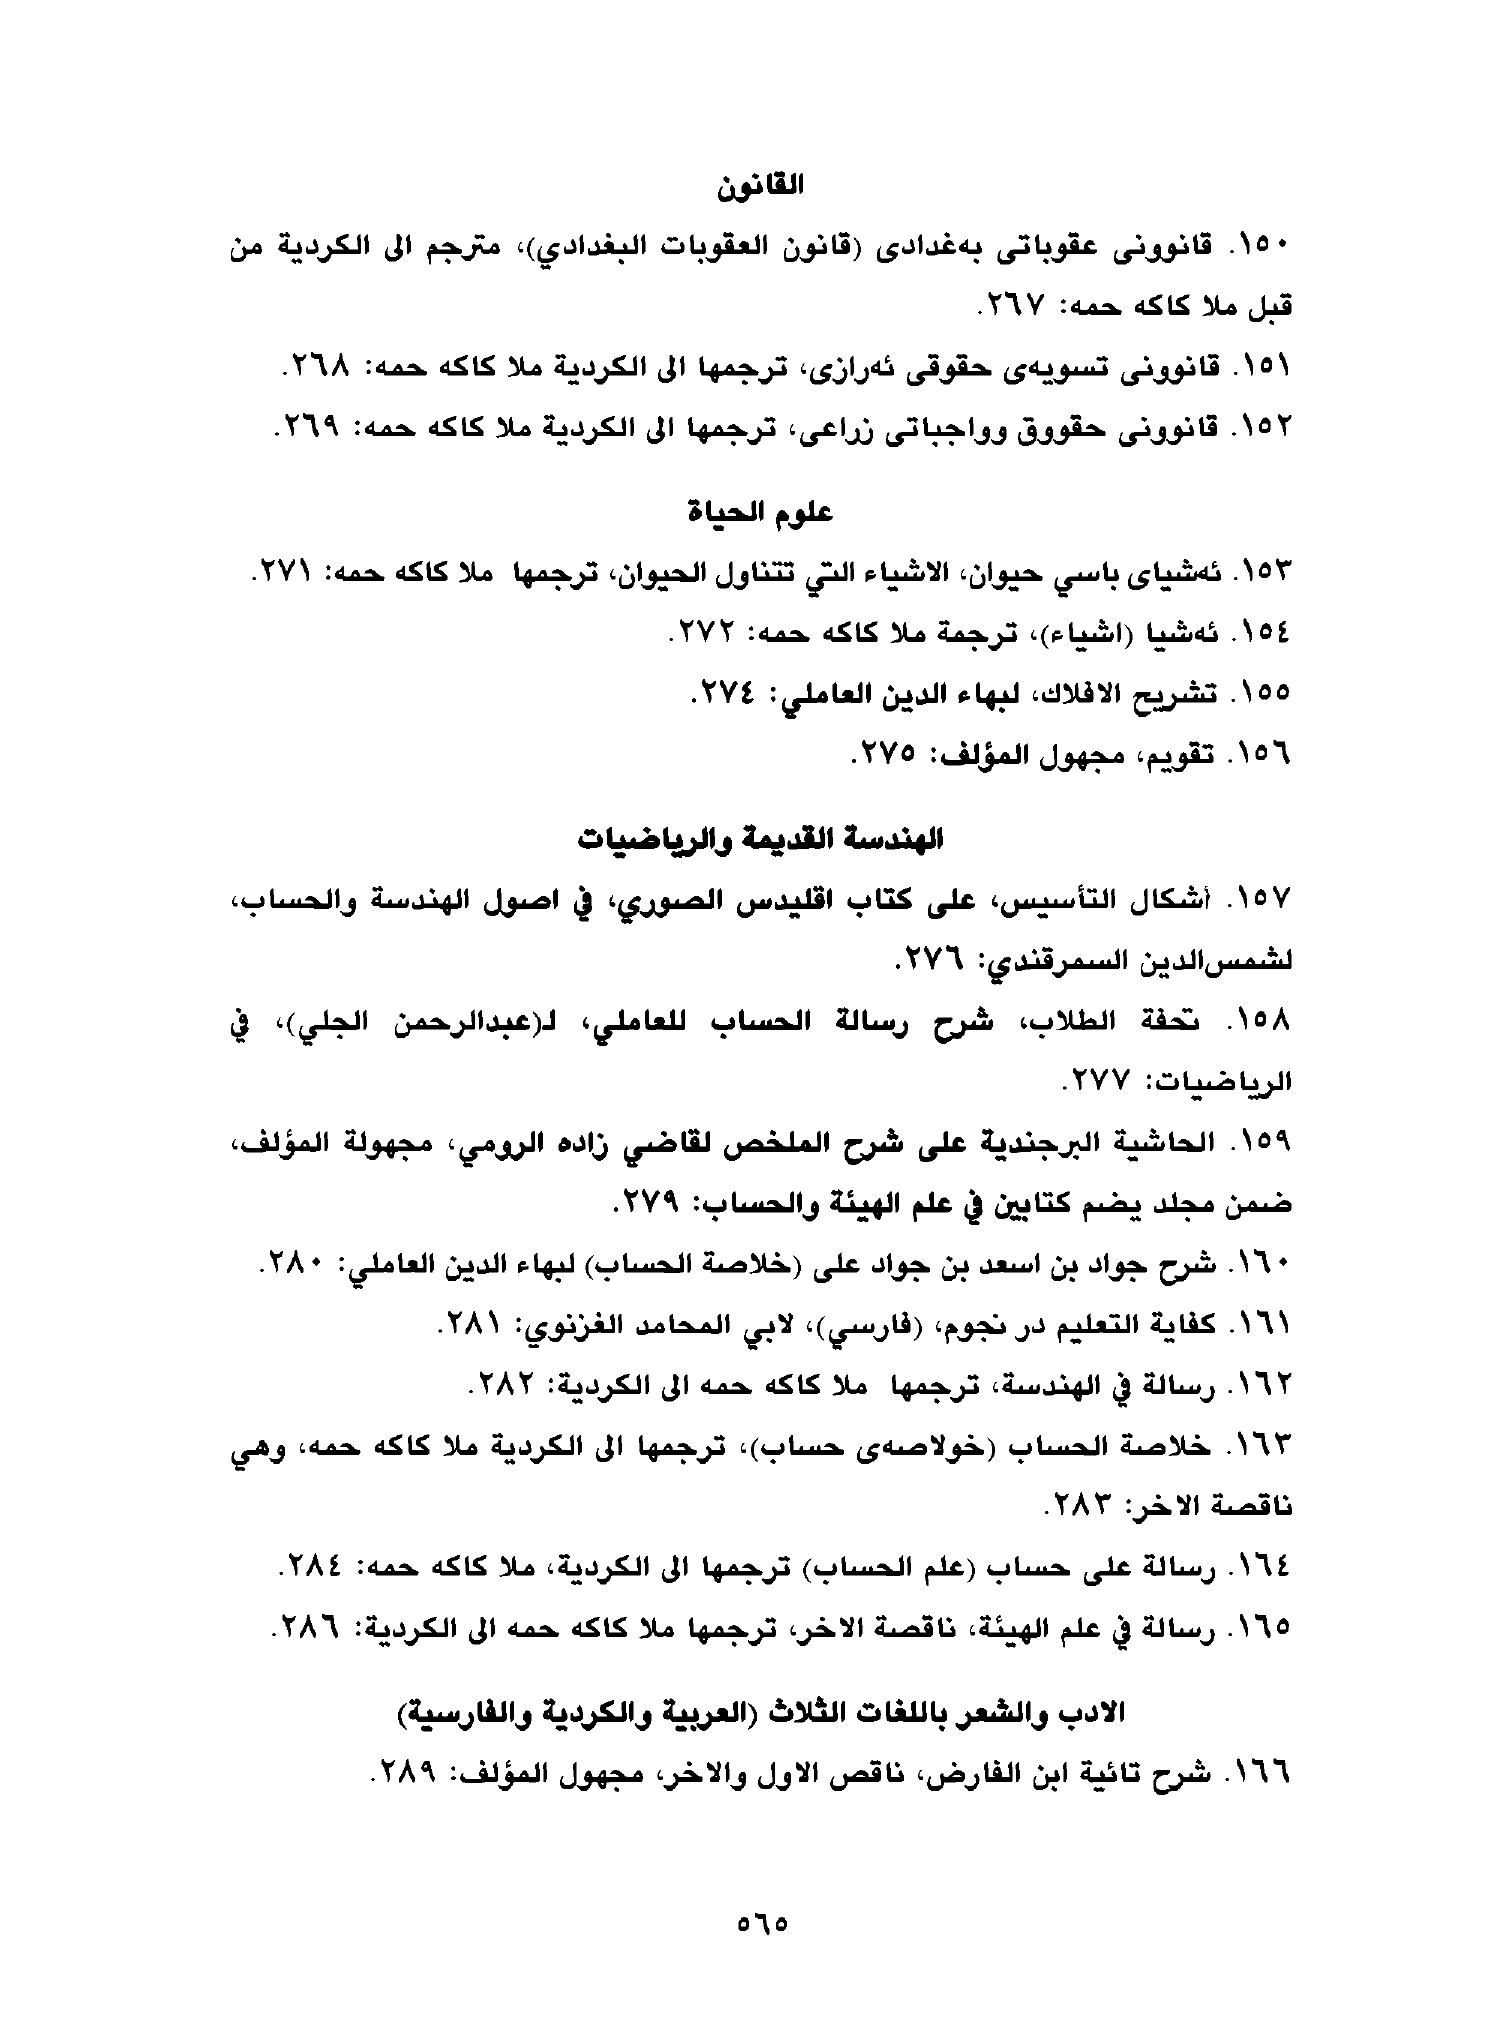 القانون
١٥٠. قانوونى عقوباتى بەغدادى (قانون العقوبات البغدادي)، مترجم الى الكردية من
قبل ملا كاكه حمه: ٢٦٧.
١٥١. قانوونى تسويەى حقوقى ئەرازى، ترجمها الى الكردية ملا كاكه حمه: ٢٦٨.
١٥٢. قانوونى حقووق وواجباتى زراعى، ترجمها الى الكردية ملا كاكه حمه: ٢٦٩.
علوم الحياة
١٥٣. ئەشياى باسي حيوان، الاشياء التي تتناول الحيوان، ترجمها ملا كاكه حمه: ٢٧١.
١٥٤. ئەشيا (اشياء)، ترجمة ملا كاكه حمه: ٢٧٢.
١٥٥. تشريح الافلاك، لبهاء الدين العاملي: ٢٧٤.
١٥٦. تقويم، مجهول المؤلف: ٢٧٥.
الهندسة القديمة والرياضيات
١٥٧. أشكال التأسيس، على كتاب اقليدس الصوري، في اصول الهندسة والحساب،
لشمس‌الدين السمرقندي: ٢٧٦.
١٥٨. تحفة الطلاب، شرح رسالة الحساب للعاملي، لـ(عبدالرحمن الجلي)، في
الرياضيات: ٢٧٧.
١٥٩. الحاشية البرجندية على شرح الملخص لقاضي زاده الرومي، مجهولة المؤلف،
ضمن مجلد يضم كتابين في علم الهيئة والحساب: ٢٧٩.
١٦٠. شرح جواد بن اسعد بن جواد على (خلاصة الحساب) لبهاء الدين العاملي: ٢٨٠.
١٦١. كفاية التعليم در نجوم، (فارسي)، لابي المحامد الغزنوي: ٢٨١.
١٦٢. رسالة في الهندسة، ترجمها ملا كاكه حمه الى الكردية: ٢٨٢.
١٦٣. خلاصة الحساب (خولاصەى حساب)، ترجمها الى الكردية ملا كاكه حمه، وهي
ناقصة الاخر: ٢٨٣.
١٦٤. رسالة على حساب (علم الحساب) ترجمها الى الكردية، ملا كاكه حمه: ٢٨٤.
١٦٥. رسالة في علم الهيئة، ناقصة الاخر، ترجمها ملا كاكه حمه الى الكردية: ٢٨٦.
الادب والشعر باللغات الثلاث (العربية والكردية والفارسية)
١٦٦. شرح تائية ابن الفارض، ناقص الاول والاخر، مجهول المؤلف: ٢٨٩.
٥٦٥